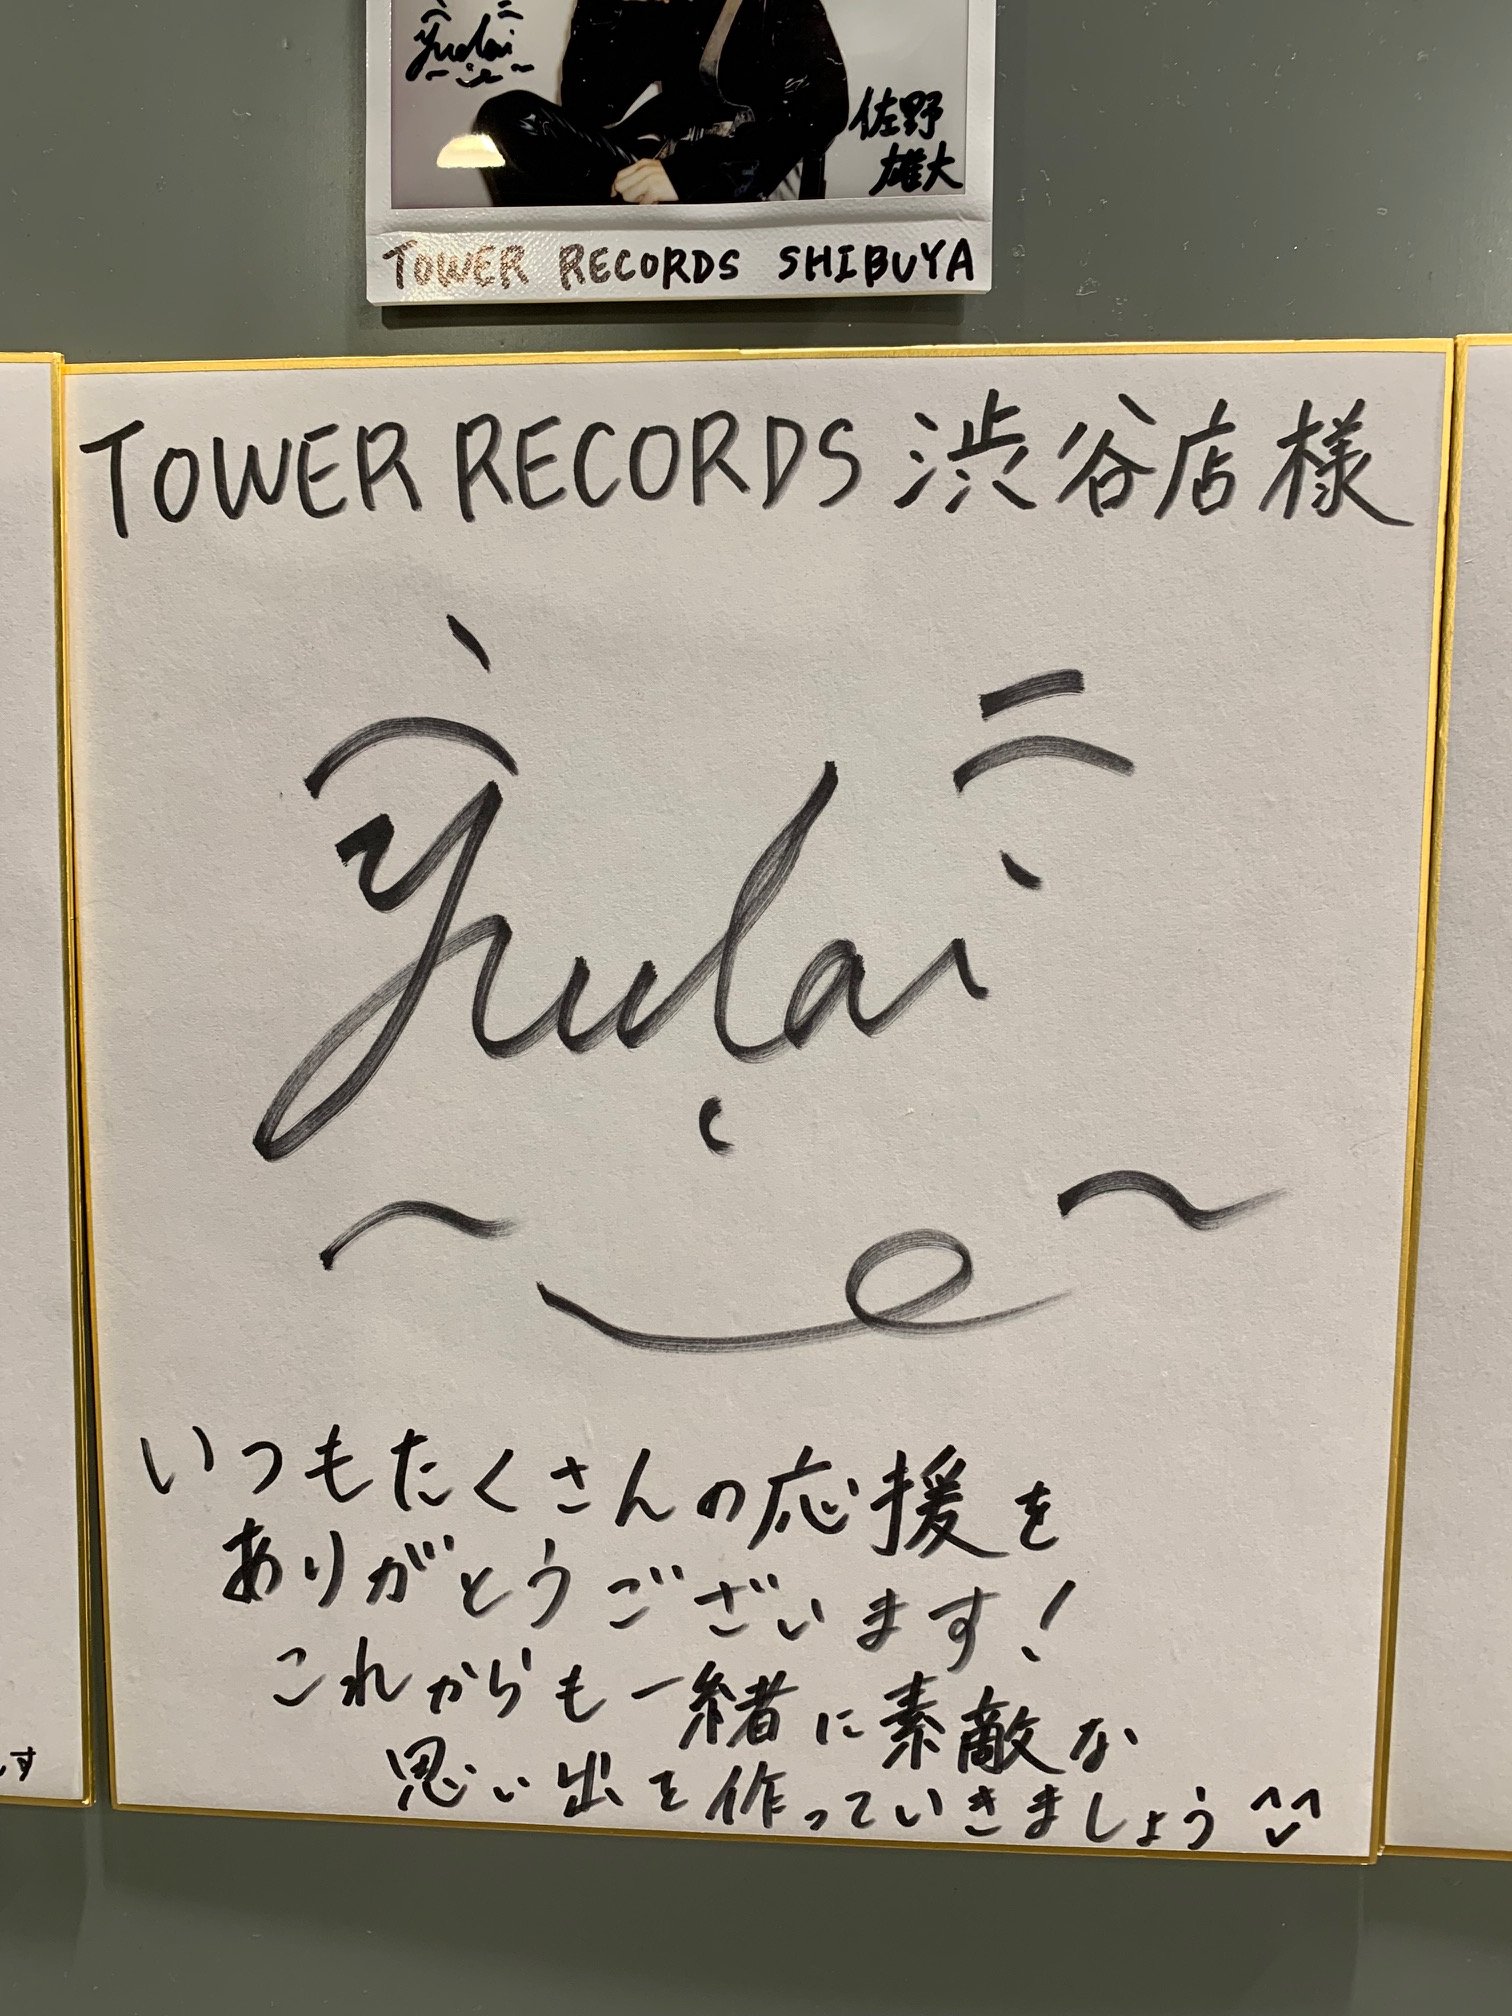 Yudai
佐野
雄大
TOWER RECORDS SHIBUYA
TOWER RECORDS 渋谷店様
Yudai
いつもたくさんの応援を
ありがとうございます!
これからも一緒に素敵な
思い出を作っていきましょう^^
す